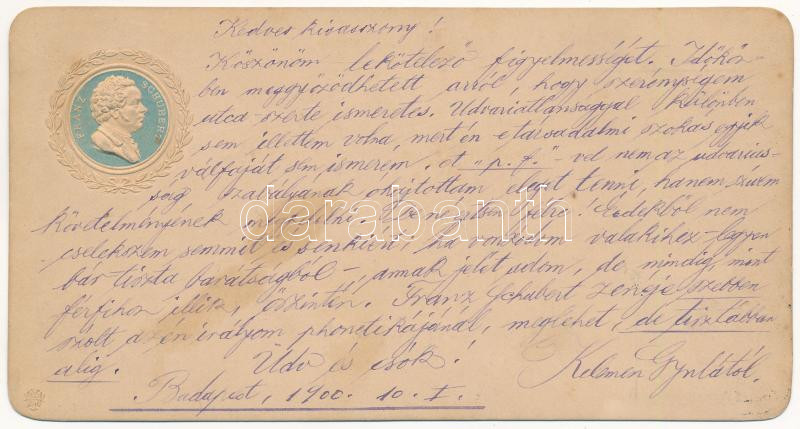 Kedves kisasszony!
Köszönöm lekötelező figyelmességét. Időköz-
ben meggyőződhetett arról, hogy szerénységem
utca-szerte ismeretes. Udvariatlansággal különben
sem illettem volna, mert én e társadalmi szokás egyik
válfaját sem ismerem. A "p. f."-vel nem az udvarias-
ság szabályának óhajtottam eleget tenni, hanem szívem
követelményének . Ne értsen félre! Érdekből nem
cselekszem semmit és senkiért, ha vonzódom valakihez - legyen
bár tiszta barátságból -, annak jelét adom, de mindig, mint
férfihoz illik, őszintén. Franz Schubert zenéje szebben
szólt az én irályom phonetikájánál, meglehet, de tisztábban
alig. Üdv és csók! Kelemen Gyulától.
Budapest, 1900. 10. I.
FRANZ SCHUBERT
darabanth